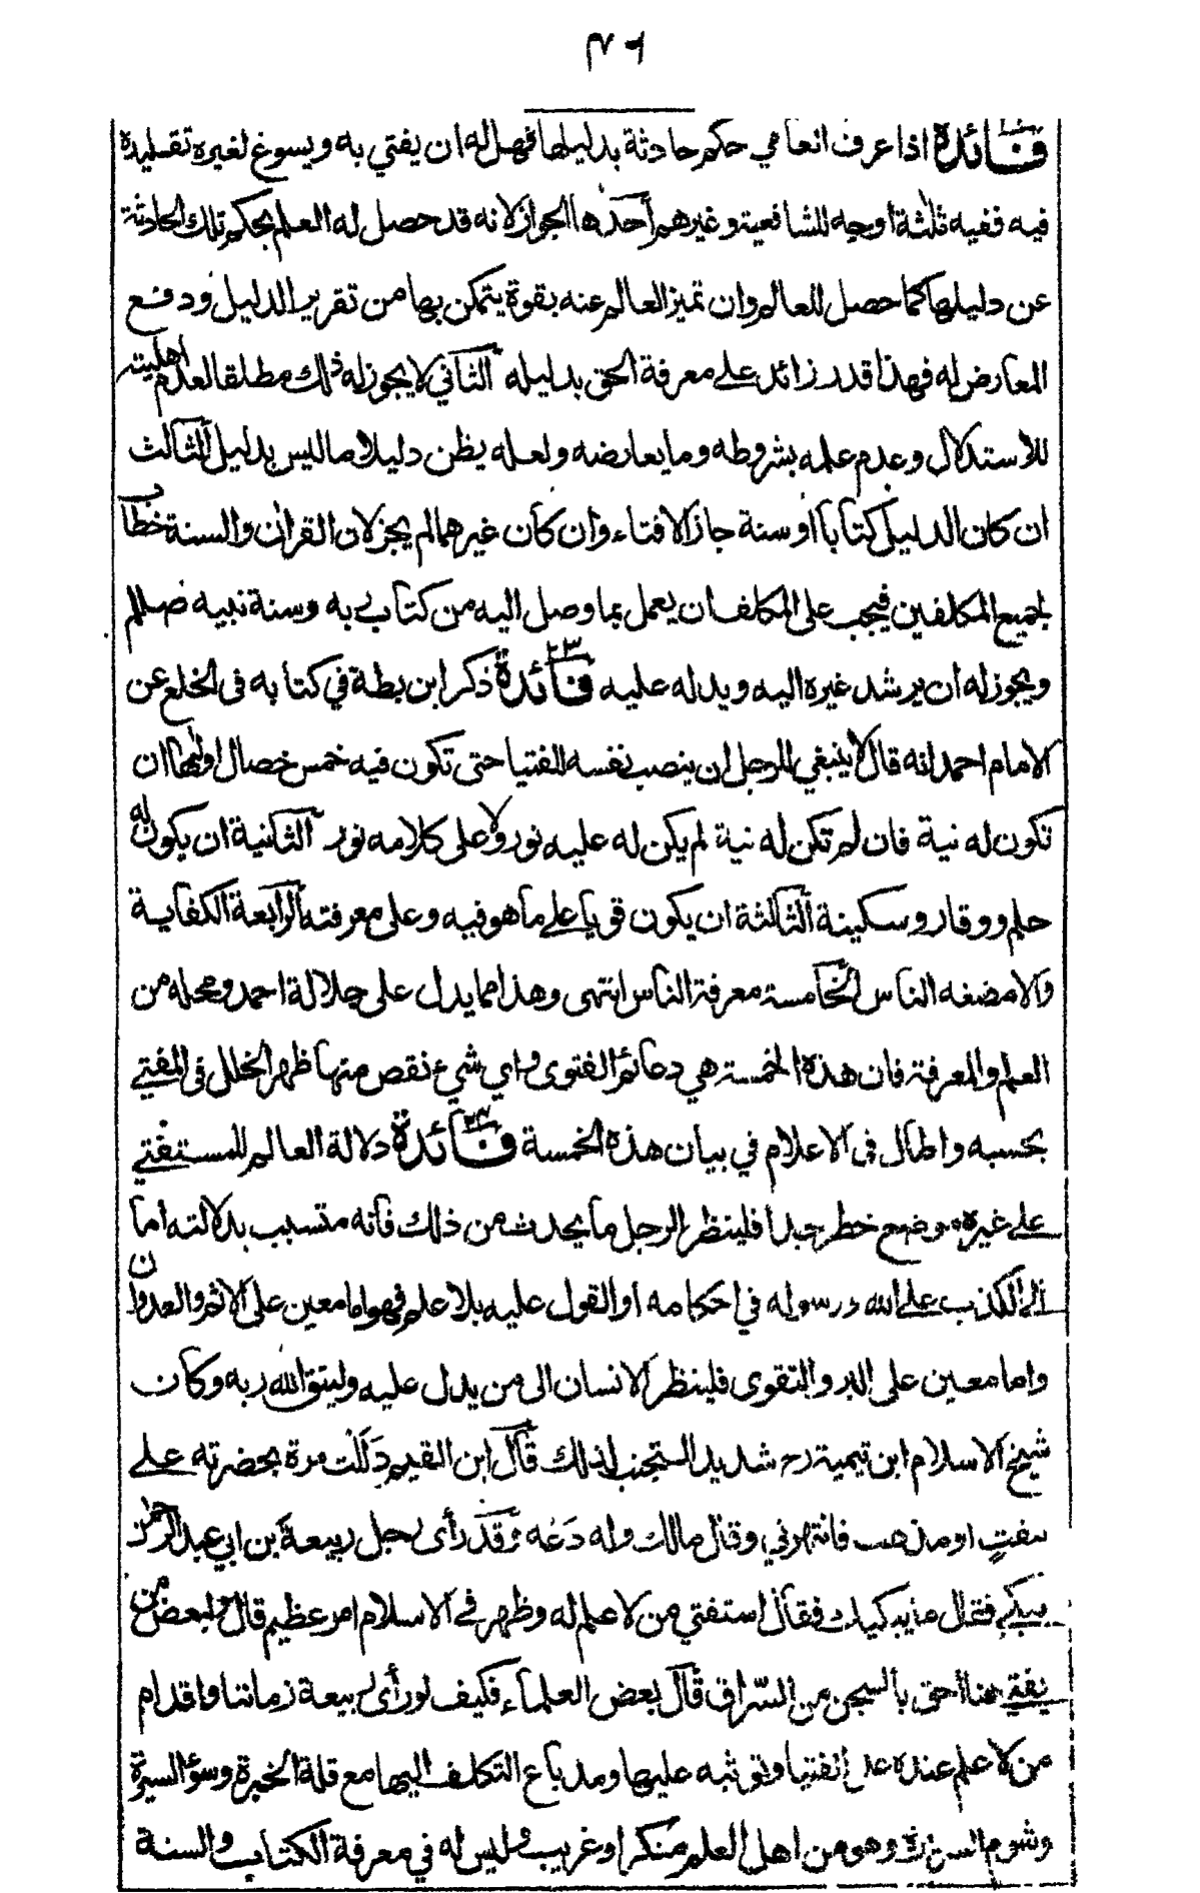 ٤٦
فائدة اذا عرف العامي حكم حادثة بدليلها فهل له ان يفتي به ويسوغ لغيره تقليده
فيه ففيه ثلثة اوجه للشافعية وغيرهم أحدها الجواز لانه قد حصل له العلم بحكم تلك الحادثة
عن دليلها كما حصل للعالم وان تميز العالم عنه بقوة يتمكن بها من تقرير الدليل ودفع
المعارض له فهذا قدر زائد على معرفة الحق بدليله الثاني لا يجوز له ذلك مطلقا لعدم اهليته
للاستدلال وعدم علمه بشروطه وما يعارضه ولعله يظن دليلا ما ليس بدليل الثالث
ان كان الدليل كتابا او سنة جاز الافتاء وان كان غيرهما لم يجز لان القران والسنة خطاب
لجميع المكلفين فيجب على المكلف ان يعمل بما وصل اليه من كتاب ربه وسنة نبيه صللم
ويجوز له ان يرشد غيره اليه ويدله عليه فائدة ٢٣ ذكر ابن بطة في كتابه في الخلع عن
الامام احمد انه قال لا ينبغي للرجل ان ينصب نفسه للفتيا حتى تكون فيه خمس خصال اولها ان
تكون له نية فان لم تكن له نية لم يكن له عليه نور ولا على كلامه نور الثانية ان يكون له
حلم ووقار وسكينة الثالثة ان يكون قويا على ما هو فيه وعلى معرفته الرابعة الكفاية
والا مضغه الناس الخامسة معرفة الناس انتهى وهذا مما يدل على جلالة احمد ومحله من
العلم والمعرفة فان هذه الخمسة هي دعائم الفتوى واي شيء نقص منها ظهر الخلل في المفتي
بحسبه واطال في الاعلام في بيان هذه الخمسة فائدة ٢٤ دلالة العالم للمستفتي
على غيره موضع خطر جدا فلينظر الرجل ما يحدث من ذلك فانه متسبب بدلالته اما
الى الكذب على الله ورسوله في احكامه او القول عليه بلا علم فهو اما معين على الاثم والعدوان
واما معين على البر والتقوى فلينظر الانسان الى من يدل عليه وليتق الله ربه وكان
شيخ الاسلام ابن تيمية رح شديد التجنب لذلك قال ابن القيم دَلَلْت مرة بحضرته على
مفتٍ او مذهب فانتهرني وقال مالك وله دَعْه وقد رأى رجل ربيعة بن ابي عبد الرحمن
يبكي فقال ما يبكيك فقال استفتي من لا علم له وظهر في الاسلام امر عظيم قال ولبعض من
يفتي هنا احق بالسجن من السّراق قال بعض العلماء فكيف لو رأى ربيعة زماننا واقدام
من لا علم عنده على الفتيا وتوثبه عليها ومد باع التكلف اليها مع قلة الخبرة وسوء السيرة
وشوم السريرة وهو من اهل العلم منكر او غريب وليس له في معرفة الكتاب والسنة